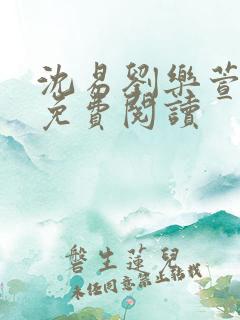 沈易劉樂萱
免費閱讀
磬生蓮兒
未经同意禁止转载